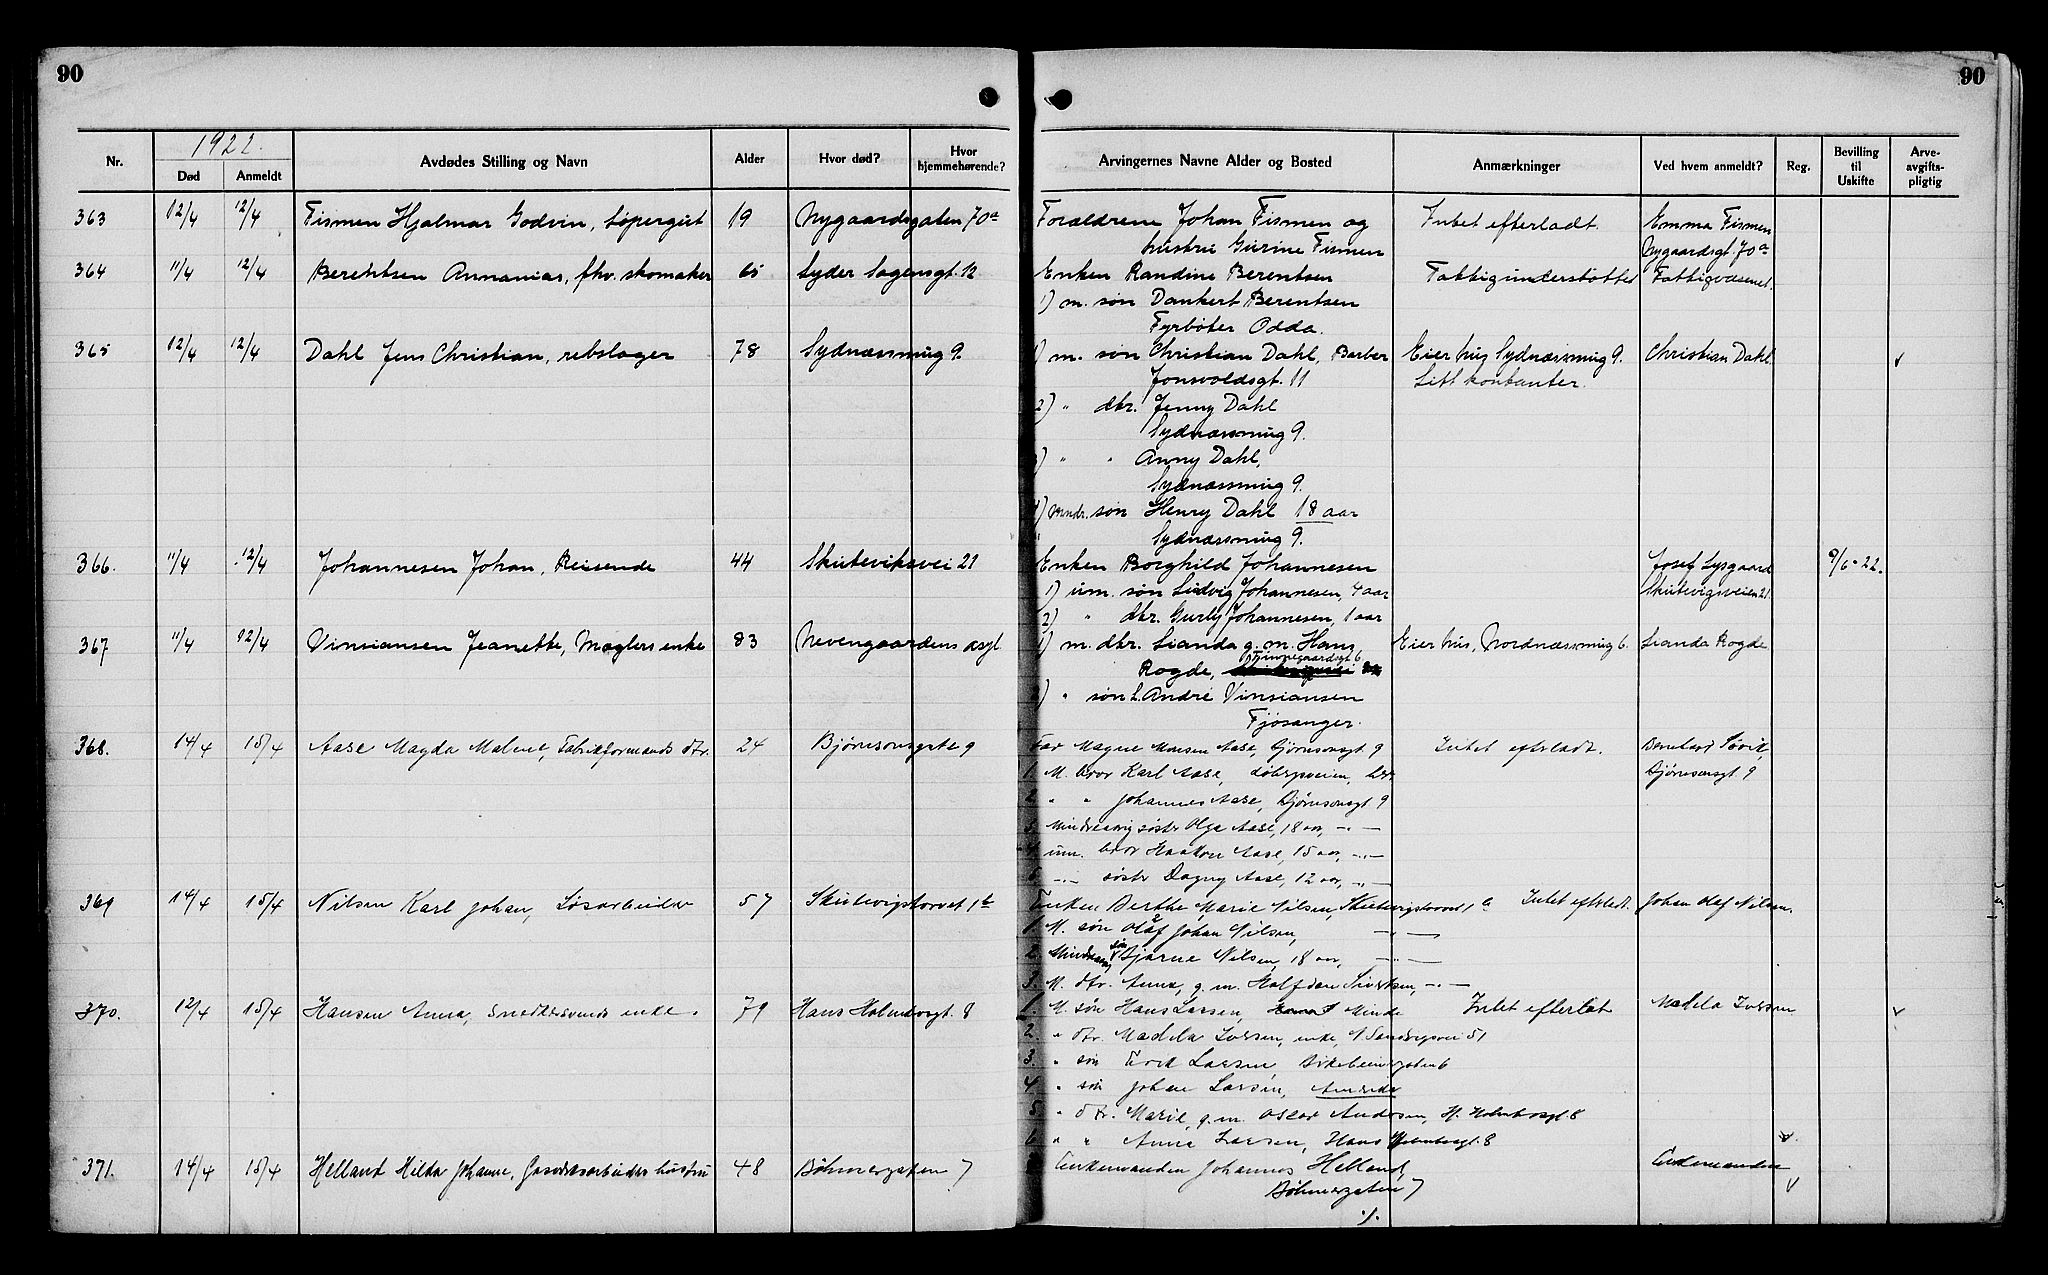 90
90
1922.
Nr.
Død
Anmeldt
Avdødes Stilling og Navn
Alder
Hvor død?
Hvor hjemmehørende?
Arvingernes Navne Alder og Bosted
Anmærkninger
Ved hvem anmeldt?
Reg.
Bevilling til Uskifte
Arveavgiftspligtig
363 12/4 12/4 Fismen Hjalmar Godvin, løpergut 19 Nygaardsgaten 70a Forældrene Johan Fismen og Intet efterladt. Emma Fismen
hustru Gurine Fismen Nygaardsgt. 70a
364 11/4 12/4 Berentsen Annanias, fhv. skomaker 65 Lyder Sagensgt. 12 Enken Randine Berentsen Fattigunderstøttet Fattigvæsenet.
1) m. søn Dankert Berentsen
Fyrbøter Odda.
365 12/4 12/4 Dahl Jens Christian, rebslager 78 Sydnæssmug 9. 1) m. søn Christian Dahl, Barber Eier hus Sydnæssmug 9. Christian Dahl. v
Jonsvoldsgt. 11 Litt kontanter.
2) " dtr. Jenny Dahl
Sydnæssmug 9.
3) " " Anny Dahl,
Sydnæssmug 9.
4) mndr. søn Henry Dahl 18 aar
Sydnæssmug 9.
366. 11/4 12/4 Johannesen Johan, Reisende 44 Skuteviksvei 21 Enken Borghild Johannesen Josef Lysgaard 9/6-22.
1) um. søn Ludvig Johannesen, 4 aar Skutevigsveien 21
2) " dtr. Gurly Johannesen, 1 aar
367 11/4 12/4 Vinsiansen Jeanette, Mæglers enke 83 Nevengaardens asyl 1) m. dtr. Lianda g. m. Hans Eier hus, Nordnæssmug 6. Lianda Rogde
Rogde,
2) " søn L. André Vinsiansen
Fjøsanger.
368. 14/4 15/4 Aase Magda Malene, Fabrikformands dtr. 24 Bjørnsonsgate 9 Far Magne Monsen Aase, Bjørnsonsgt 9 Intet efterladt. Søvik,
1. M. bror Karl Aase, Bjørnsonsgt. 9
2. " " Johannes Aase, Bjørnsonsgt 9
3. Mindreaarig søster Olga Aase, 18 aar, -"-
4. um. bror Haakon Aase, 15 aar, -"-
5. -"- søster Dagny Aase, 12 aar, -"-
369 14/4 15/4 Nilsen Karl Johan, Løsarbeider 57 Skutevigstorvet 1b Enken Berthe Marie Nilsen, Skutevigstorvet 1b Intet efterladt. Johan Olaf Nilsen.
1. M. søn Olaf Johan Nilsen, -"-
2. Mindreaarig søn Bjarne Nilsen, 18 aar, -"-
3. M. dtr. Anna, g. m. Halfdan Sivertsen, -"-
370. 12/4 15/4 Hansen Anna, Snedkersvends enke. 79 Hans Holmboesgt. 8 1. M. søn Hans Larsen, Minde Intet efterlat Madela Iversen v
2. " dtr. Madela Iversen, enke, N. Sandvigsvei 51
3. " søn Erik Larsen, Birkebeinergaten 6
4. " søn Johan Larsen, Amerika
5. " dtr. Marie, g. m. Oscar Andersen, H. Holmboesgt. 8
6. " " Anna Larsen, Hans Holmboesgt. 8 v.
371. 14/4 15/4 Helland Hilda Johanne, Gasverksarbeiders hustru 48 Bøhmergaten 7 Enkemanden Johannes Helland, Enkemanden
Bøhmergaten 7 v
./.